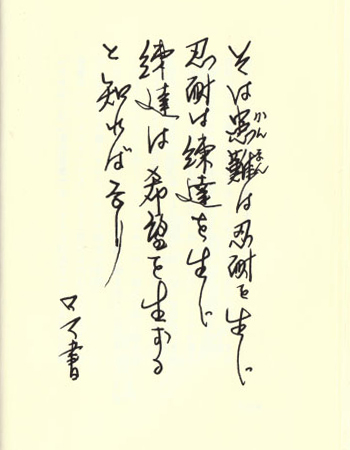 そは患難は忍耐を生じ
かんなん
忍耐は練達を生じ
練達は希望を生ずる
と知ればなり
ロマ書